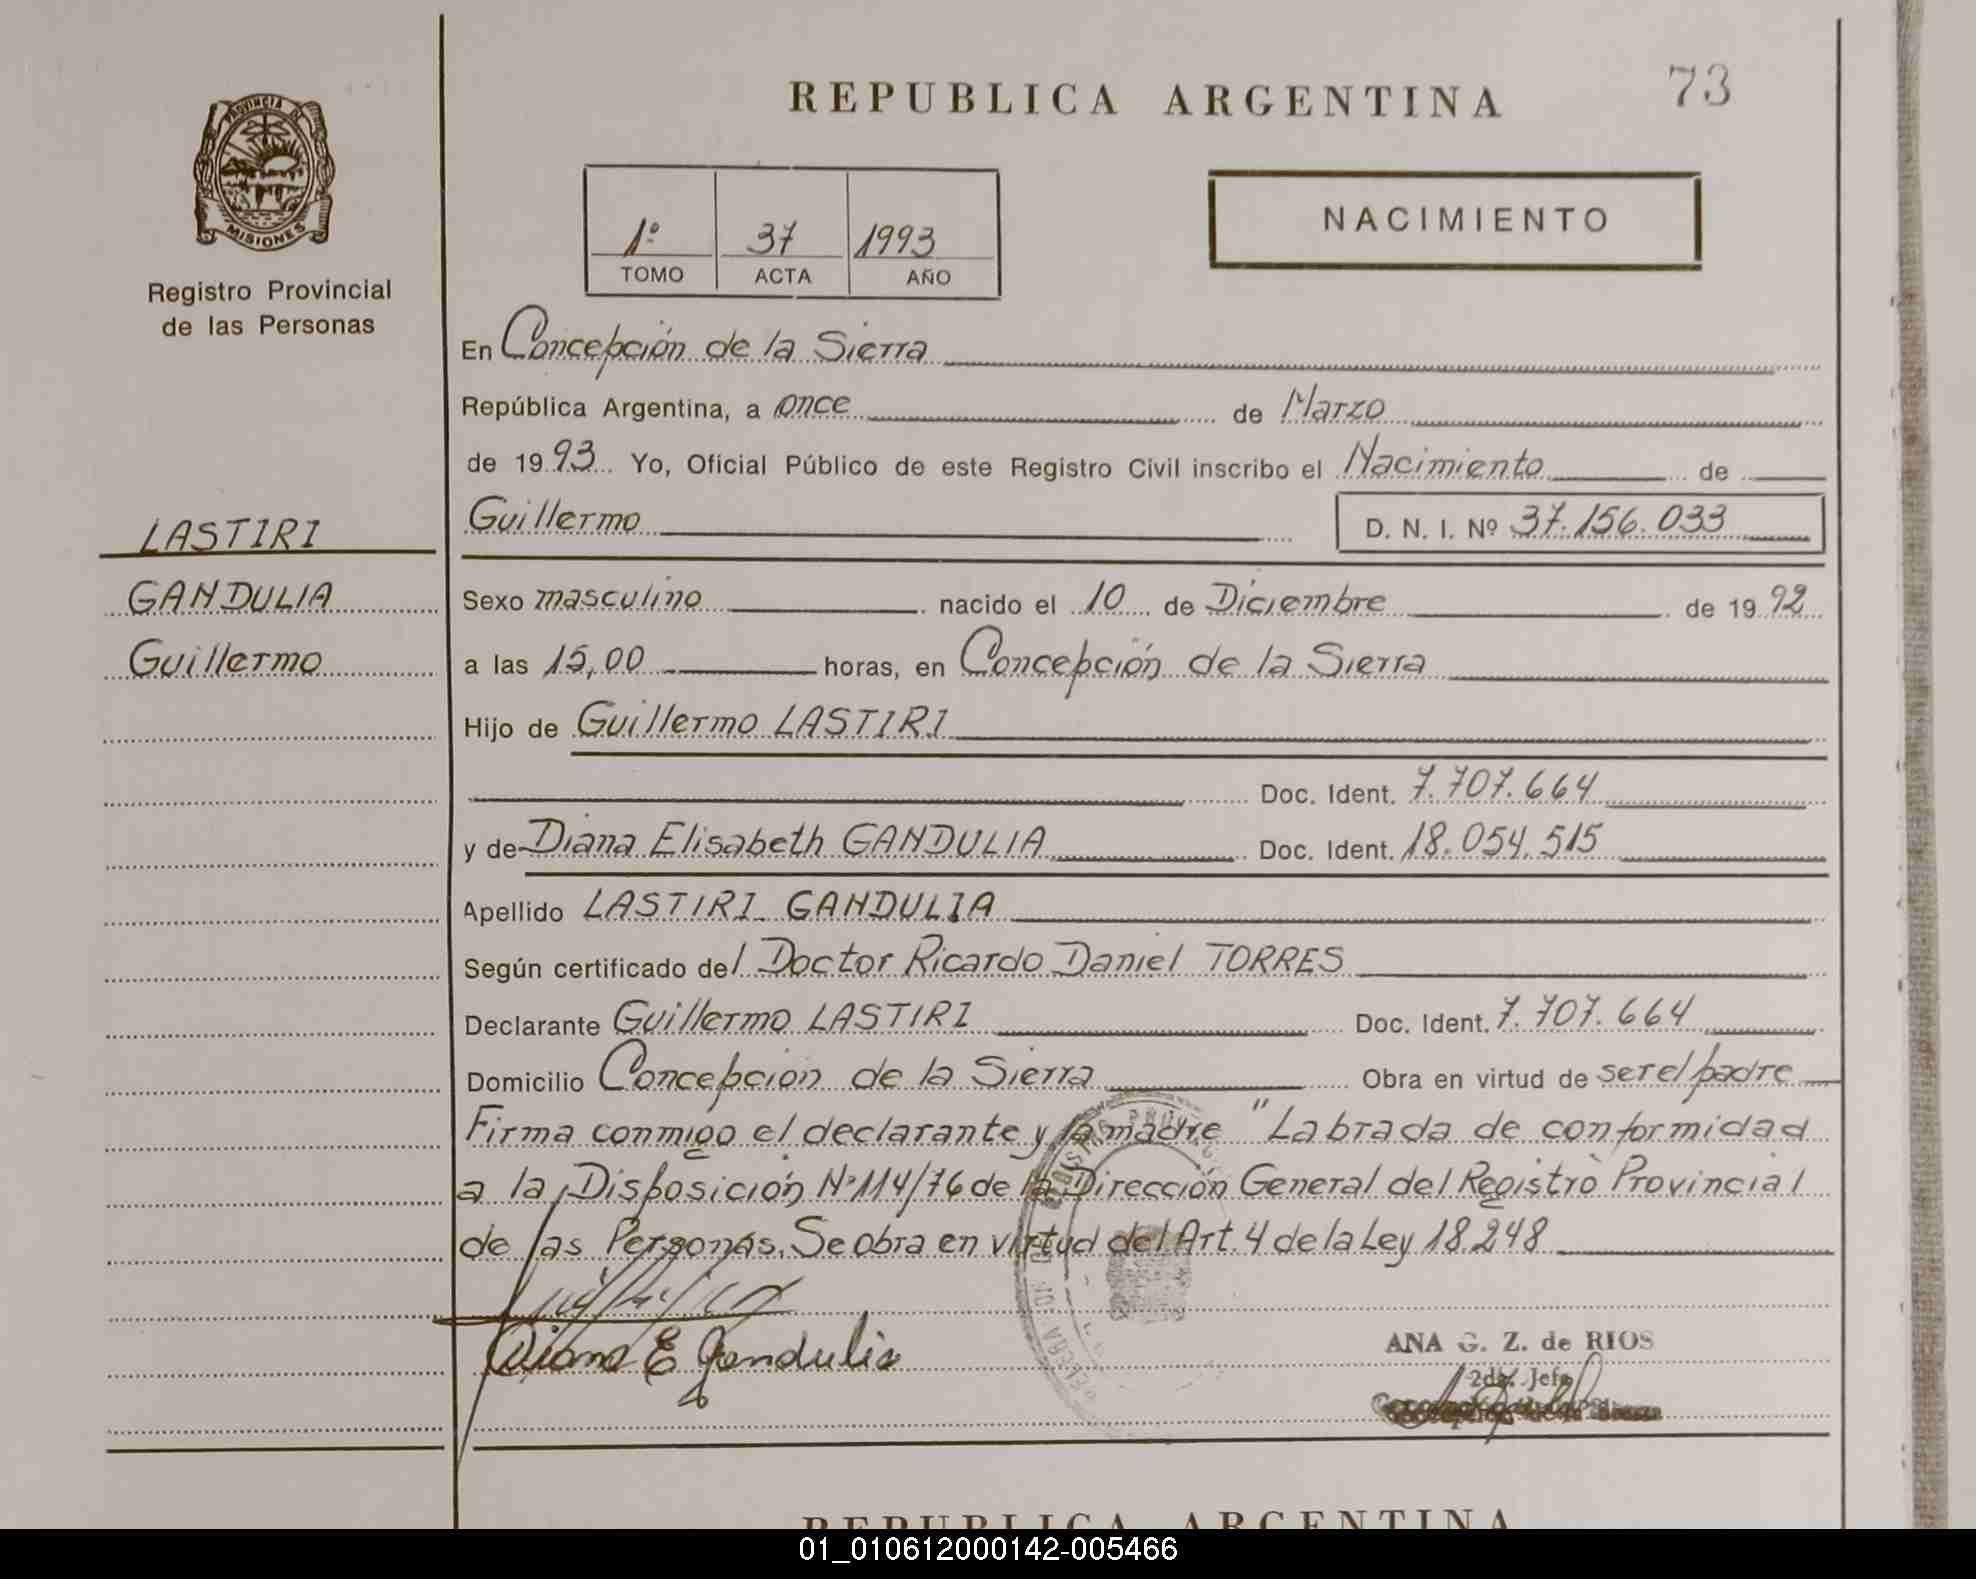 REPUBLICA ARGENTINA
73
PROVINCIA DE
MISIONES
Registro Provincial
de las Personas
1º 37 1993
TOMO ACTA AÑO
NACIMIENTO
En Concepción de la Sierra
República Argentina, a once de Marzo
de 1993 Yo, Oficial Público de este Registro Civil inscribo el Nacimiento de
Guillermo D. N. I. Nº 37.156.033
LASTIRI
GANDULIA
Guillermo
Sexo masculino nacido el 10 de Diciembre de 1992
a las 15,00 horas, en Concepción de la Sierra
Hijo de Guillermo LASTIRI
Doc. Ident. 7.707.664
y de Diana Elisabeth GANDULIA Doc. Ident. 18.054.515
Apellido LASTIRI GANDULIA
Según certificado del Doctor Ricardo Daniel TORRES
Declarante Guillermo LASTIRI Doc. Ident. 7.707.664
Domicilio Concepción de la Sierra Obra en virtud de ser el padre
Firma conmigo el declarante y la madre "Labrada de conformidad
a la Disposición Nº114/76 de la Dirección General del Registro Provincial
de las Personas. Se obra en virtud del Art. 4 de la Ley 18.248
Diana E Gandulia
ANA G. Z. de RIOS
2da. Jefe
REPUBLICA ARGENTINA
01_010612000142-005466